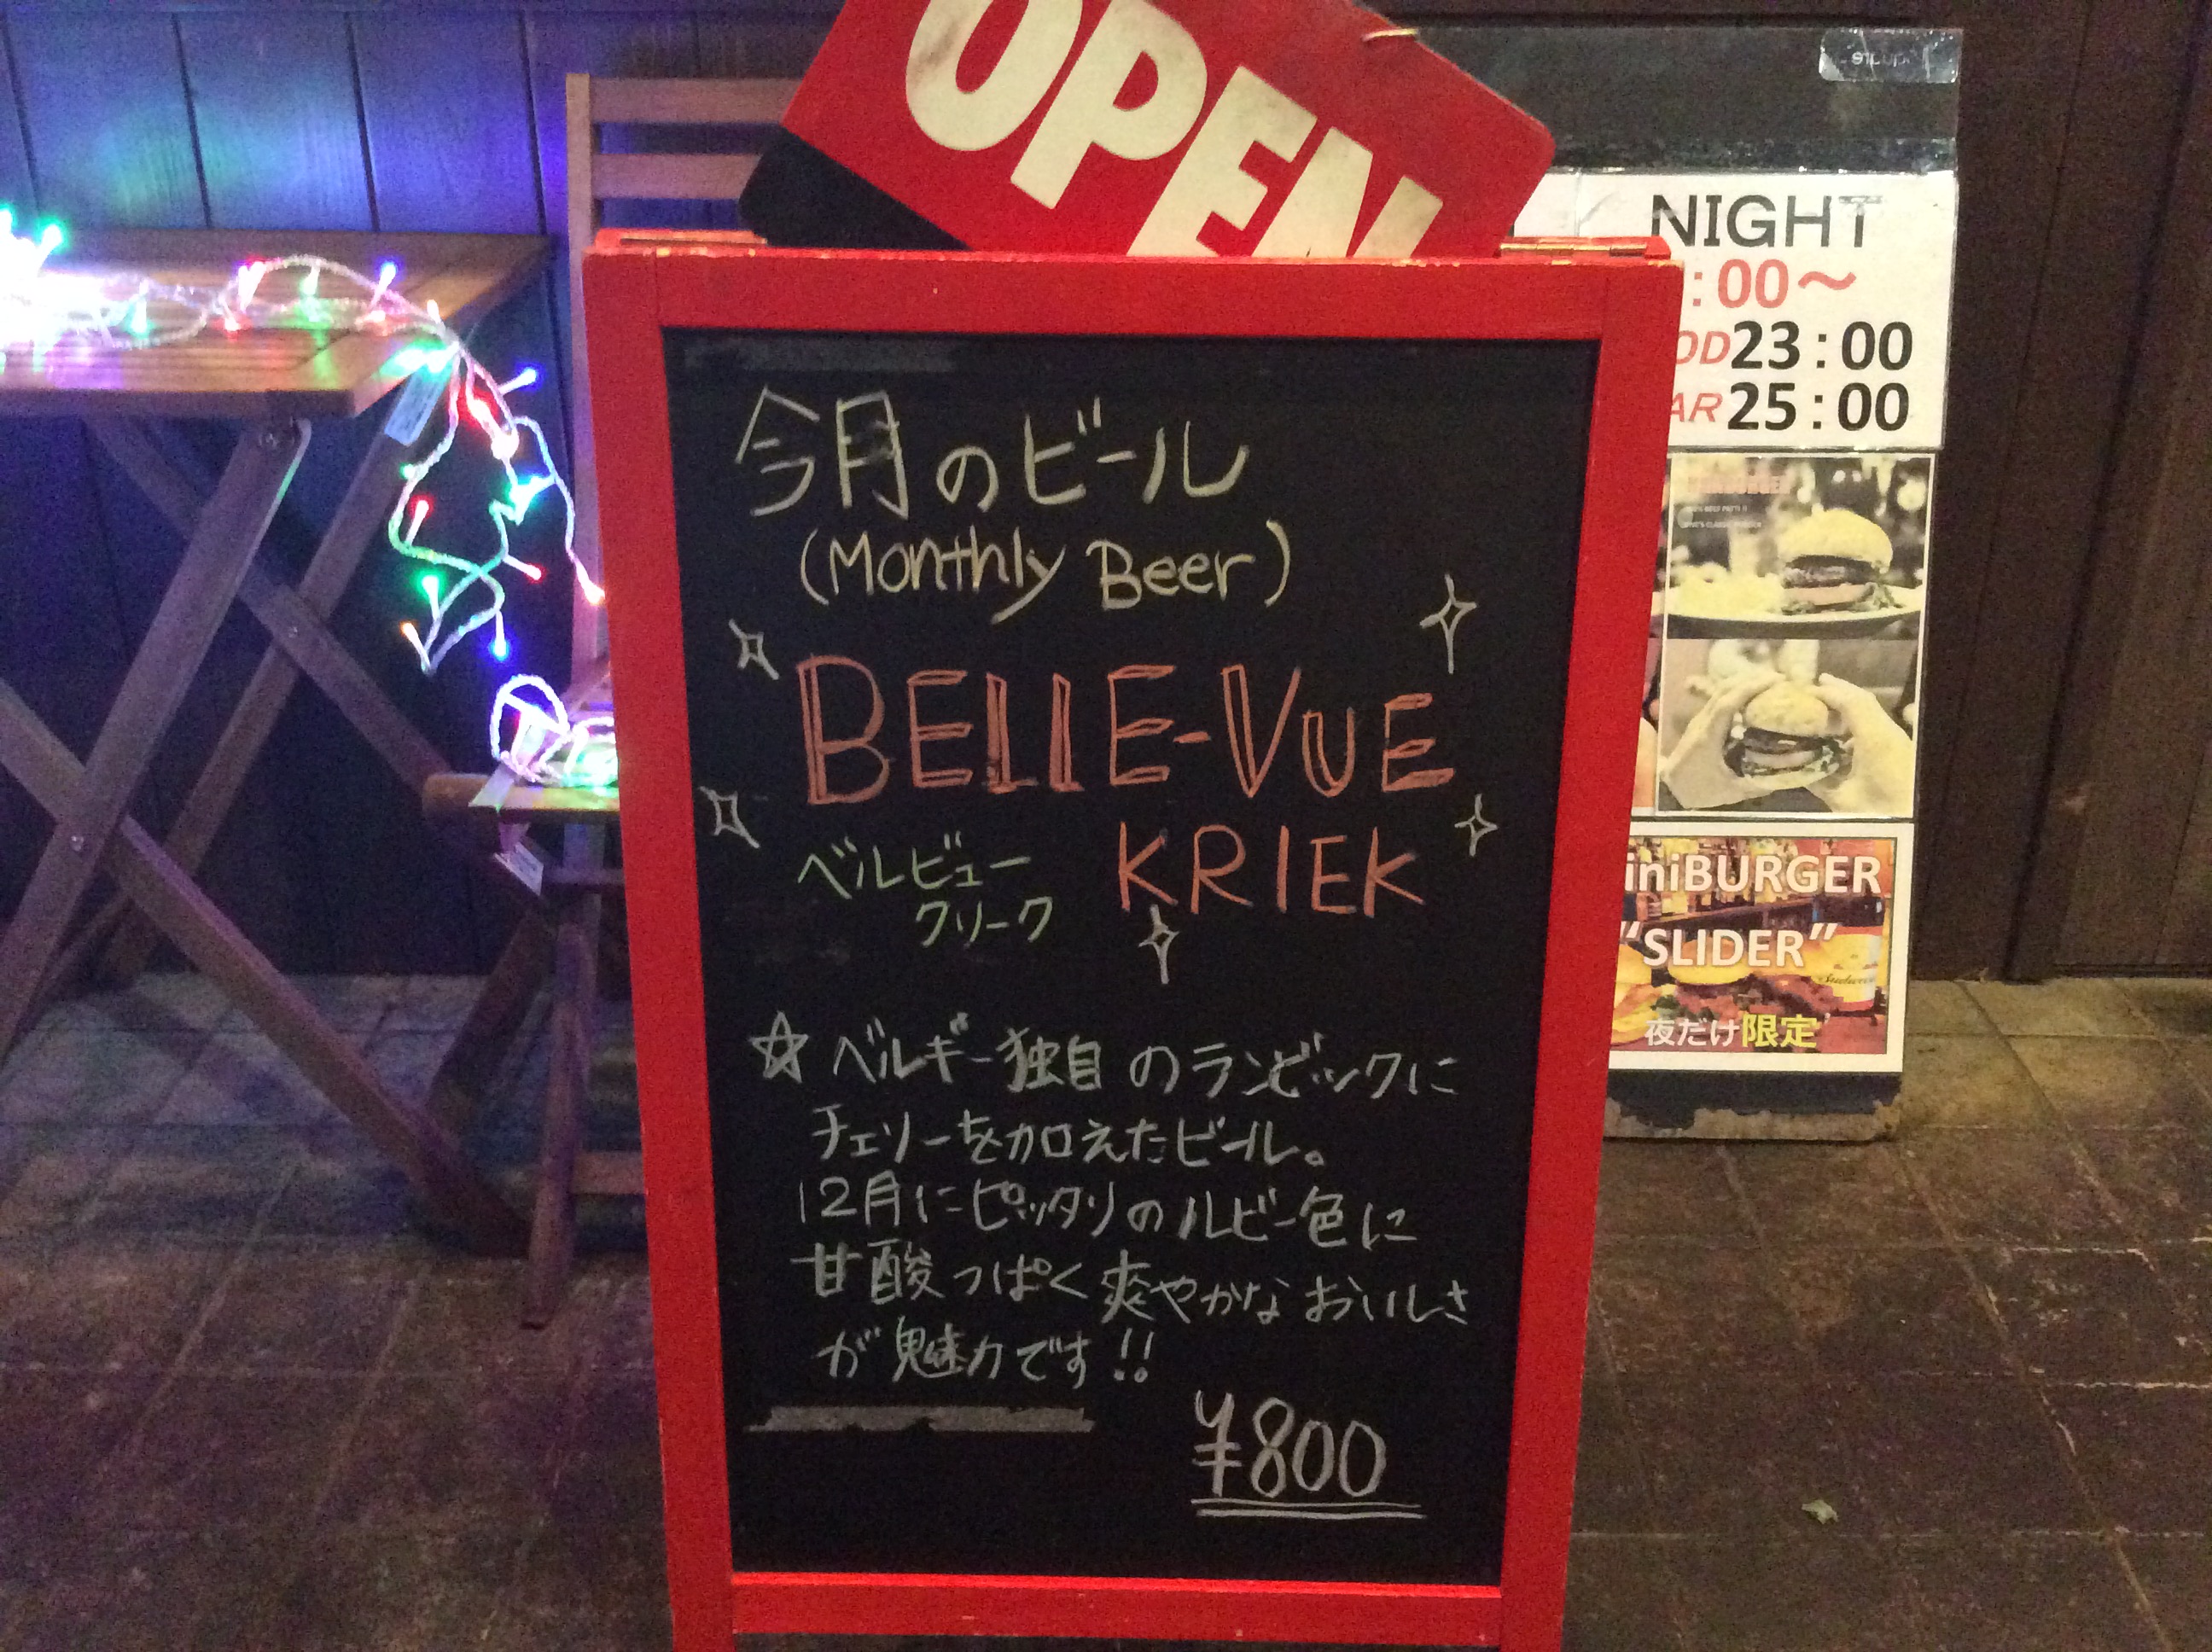 OPEN
今月のビール
(Monthly Beer)
BELLE-VUE
KRIEK
ベルビュー
クリーク
☆ベルギー独自のランビックに
チェリーを加えたビール。
12月にピッタリのルビー色に
甘酸っぱく爽やかなおいしさ
が魅力です!!
¥800
NIGHT
:00～
OD23:00
AR25:00
iniBURGER
"SLIDER"
夜だけ限定